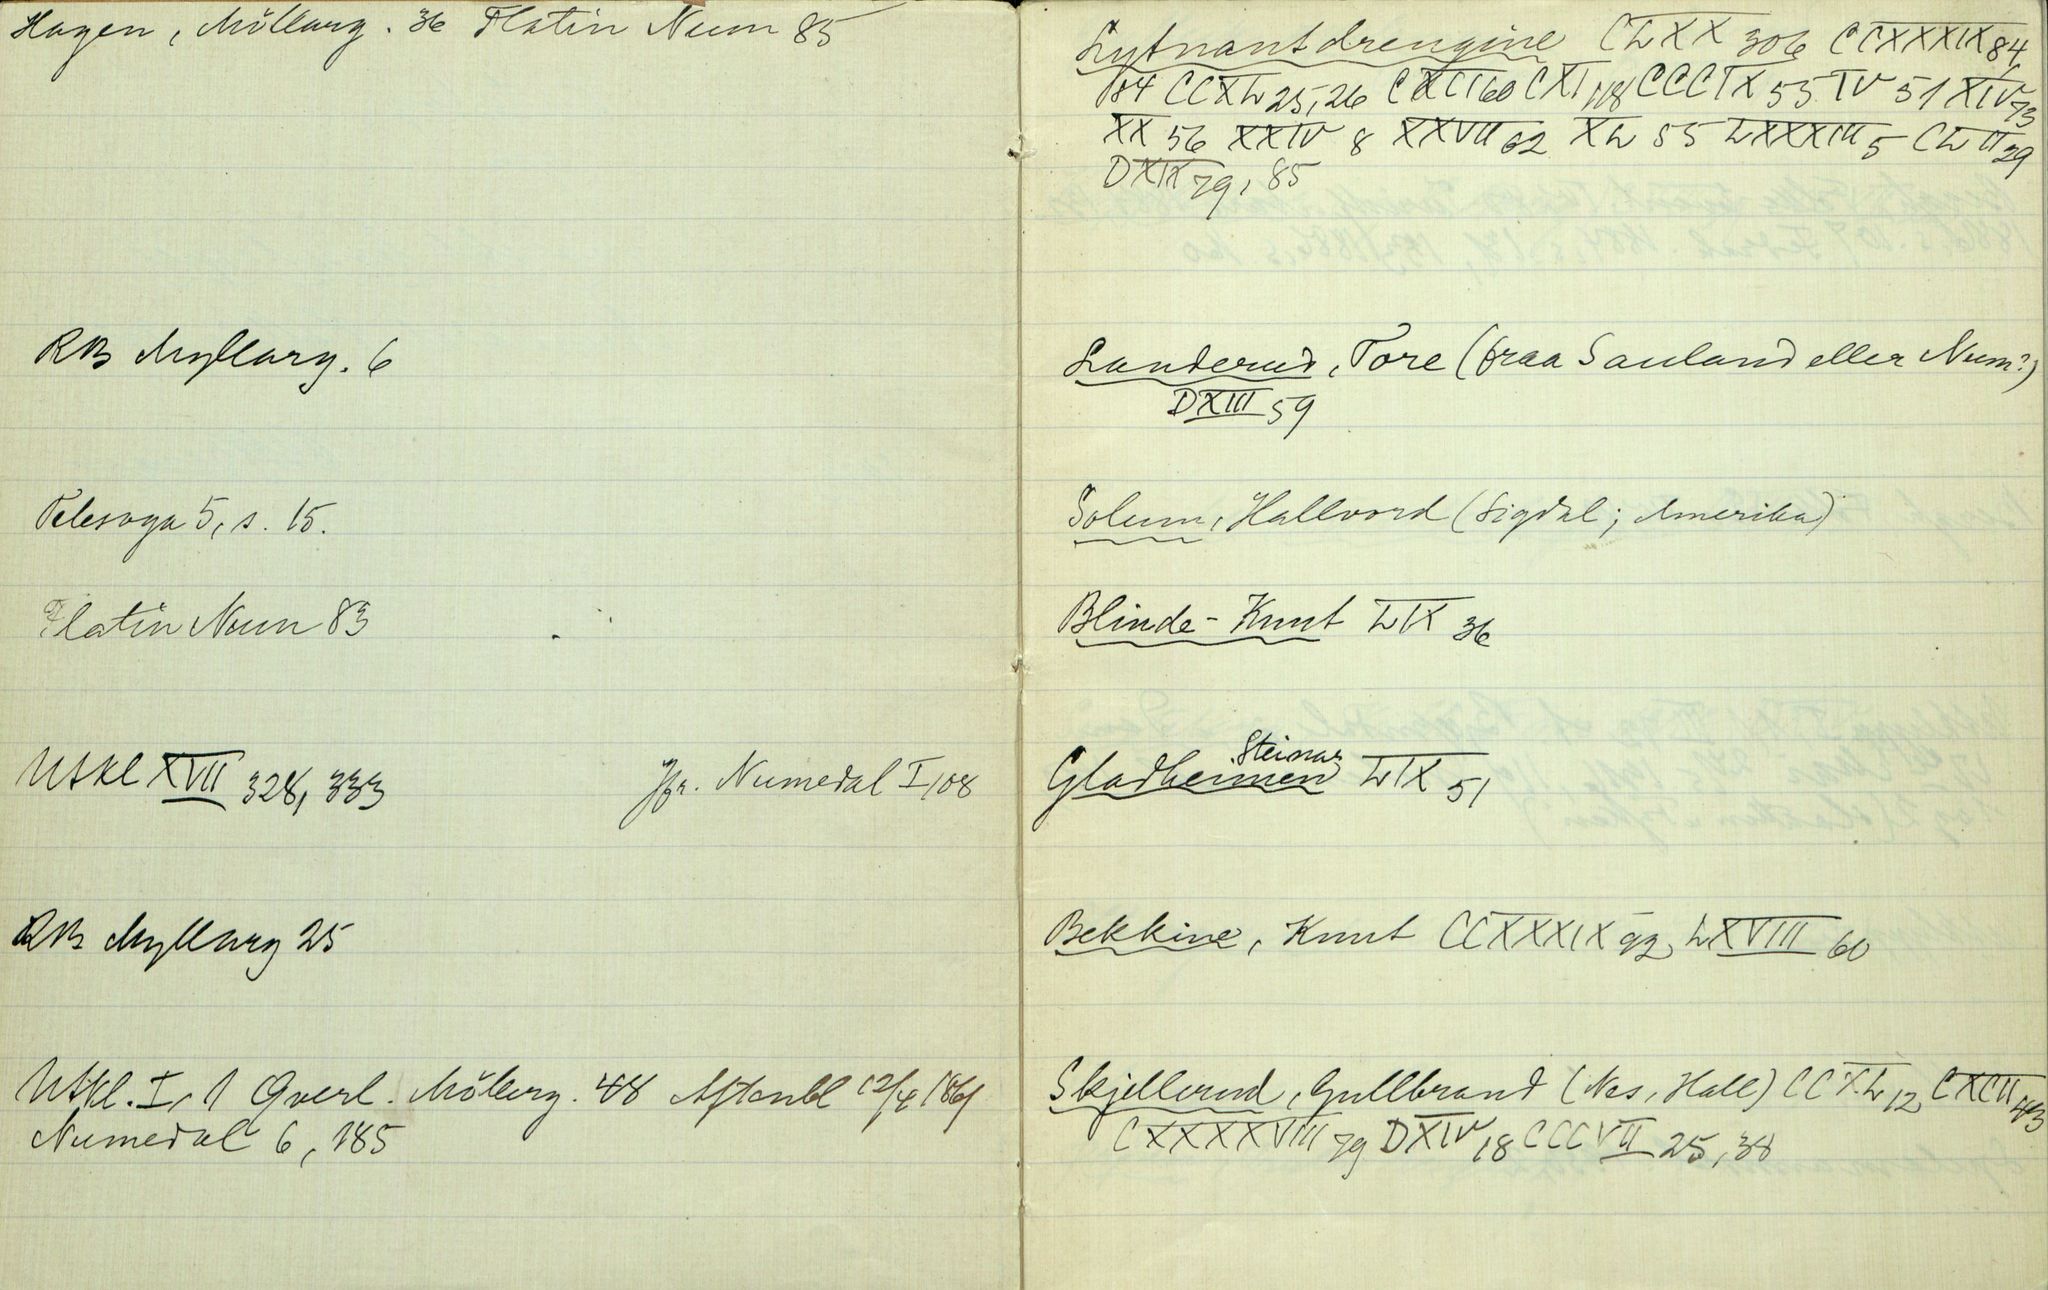 Hagen, Möllarg. 36 Flatin Num 85
RB Myllarg. 6
Telesoga 5, s. 15.
Flatin Num 83
Utkl XVII 328, 333 Jfr. Numedal I, 108
RB Myllarg 25
Utkl. I, 1 Qverl. Möllarg. 48 Aftenbl 12/4 1861
Numedal 6, 185
Lytnantdrengine CLXX 306 CCXXXIX 84,
84 CCXL 25, 26 CXCII 60 CXI 118 CCCIX 55 IV 51 XIV 73
XX 56 XXIV 8 XXVII 62 XL 55 LXXXIII 5 CLII 29
DXIX 79, 85
Landerud, Tore (fraa Sauland eller Num?)
DXIII 59
Solum, Hallvord (Sigdal; Amerika)
Blinde-Knut LIX 36
Steinar
Gladheimen LIX 51
Bekkine, Knut CCXXXIX 92, LXVIII 60
Skjellerud, Gullbrand (Nes, Hall) CCXL 12, CXCII 43
CXXXXVIII 79 DXIV 18 CCCVII 25, 38